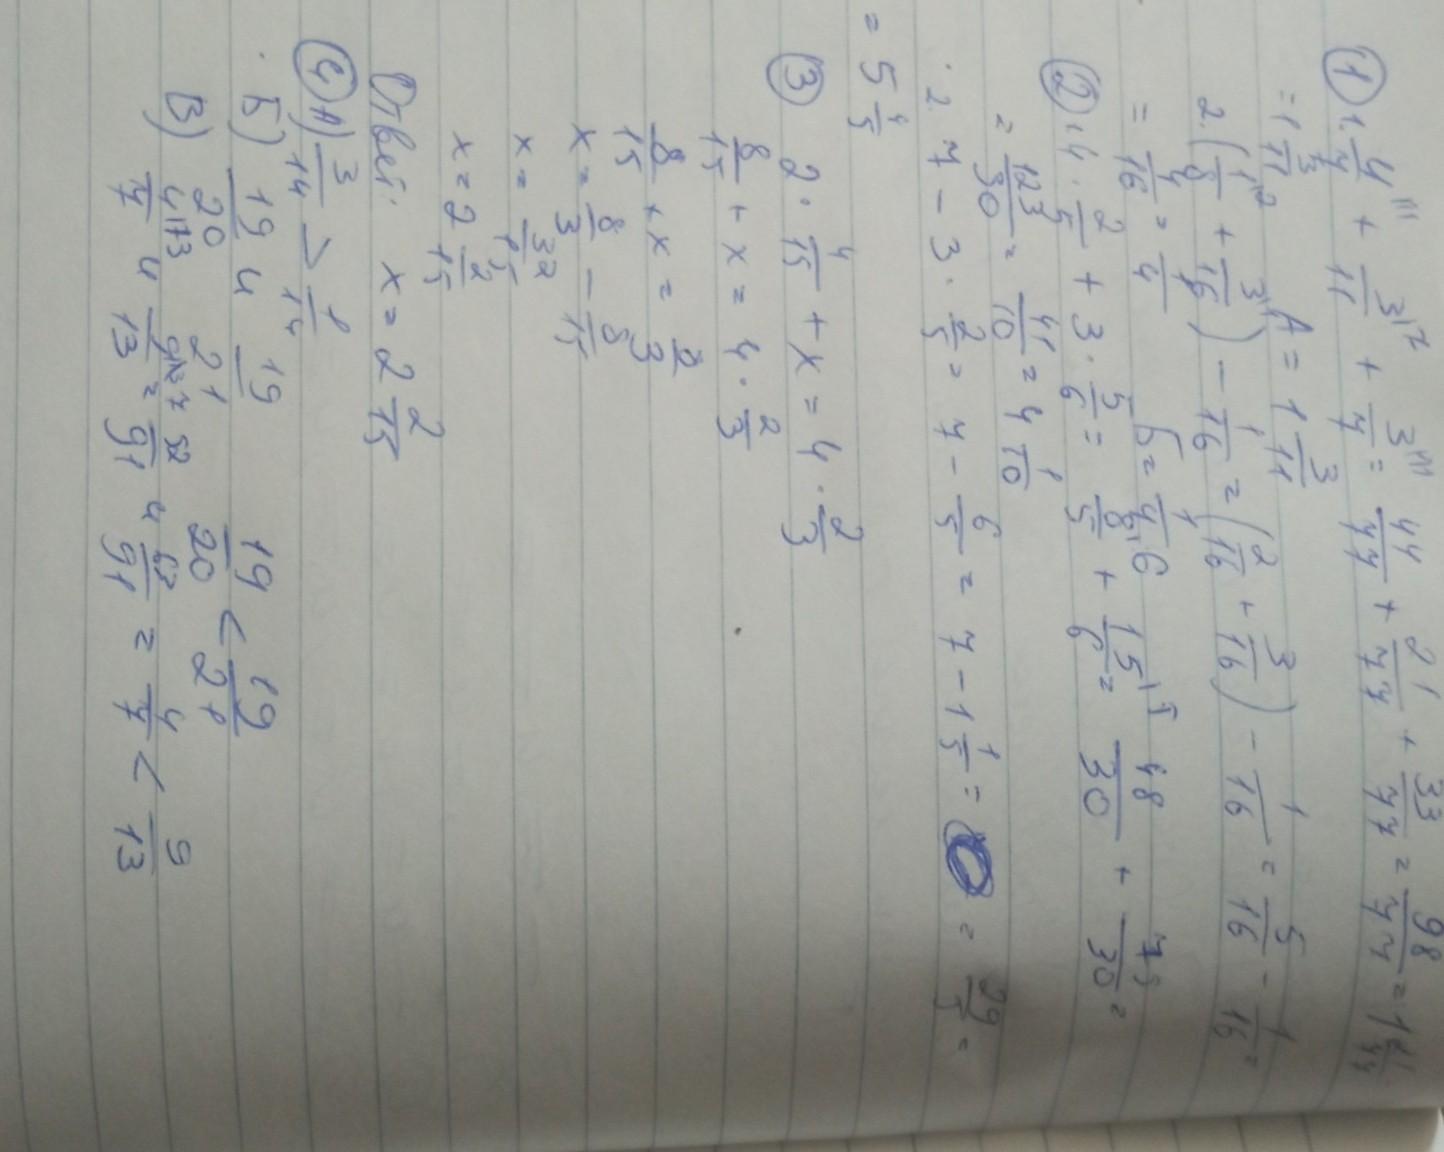 ① 1. 4/7 + 3/11 + 3/7 = 44/77 + 21/77 + 33/77 = 98/77 = 1 21/77
= 1 3/11 A = 1 3/11
2. (1/8 + 3/16) - 1/16 = (2/16 + 3/16) - 1/16 = 5/16 - 1/16 =
= 4/16 = 1/4 Б = 1/4
② 1. 4 · 2/5 + 3 · 5/6 = 8/5 + 15/6 = 48/30 + 75/30 =
= 123/30 = 41/10 = 4 1/10
2. 7 - 3 · 2/5 = 7 - 6/5 = 7 - 1 1/5 = = 29/5 =
= 5 4/5
③ 2 · 4/15 + x = 4 · 2/3
8/15 + x = 4 · 2/3
8/15 + x =
x = 8/3 - 8/15
x = 32/15
x = 2 2/15
Ответ: x = 2 2/15
④ А) 3/14 > 1/14
Б) 19/20 и 19/21 19/20 < 19/21
В) 4/7 и 9/13 = 52/91 и 63/91 = 4/7 < 9/13